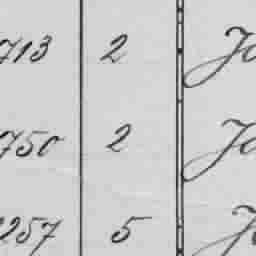 713 2 Jo
750 2 Jo
2257 5 Jo